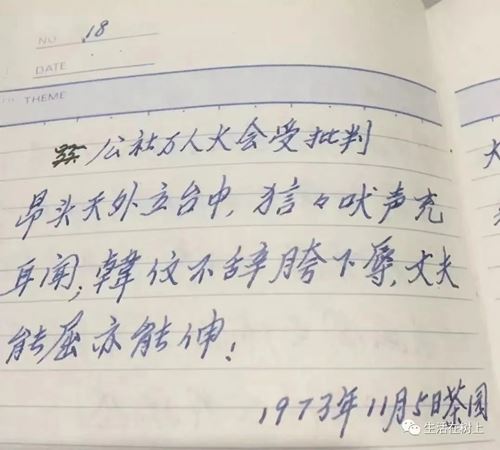 NO 18
DATE
THEME
公社万人大会受批判
昂头天外立台中,狺々吠声充
耳闻;韓伩不辞胯下辱,丈夫
能屈亦能伸!
1973年11月5日茶园
生活在树上